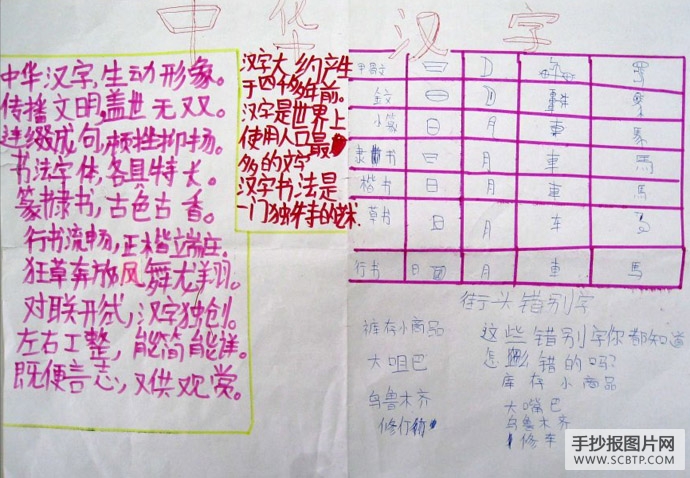 中华汉字
中华汉字,生动形象。
传播文明,盖世无双。
连缀成句,顿挫抑扬。
书法字体,各具特长。
篆隶书,古色古香。
行书流畅,正楷端庄。
狂草奔放,凤舞龙翔。
对联形式,汉字独创。
左右工整,能简能详。
既便言志,又供观赏。
汉字大约产生
于四千多年前。
汉字是世界上
使用人口最
多的文字
汉字书法是
一门独特的艺术
甲骨文 日
小篆 日 月 車 馬
隶书 日 月 車 馬
楷书 日 月 車 馬
草书 日 月 车
行书 日 月 車 馬
街头错别字
裤存小商品
大咀巴
乌鲁木齐
这些错别字你都知道
怎么错的吗?
库存小商品
大嘴巴
乌鲁木齐
修车
手抄报图片网
WWW.SCBTP.COM